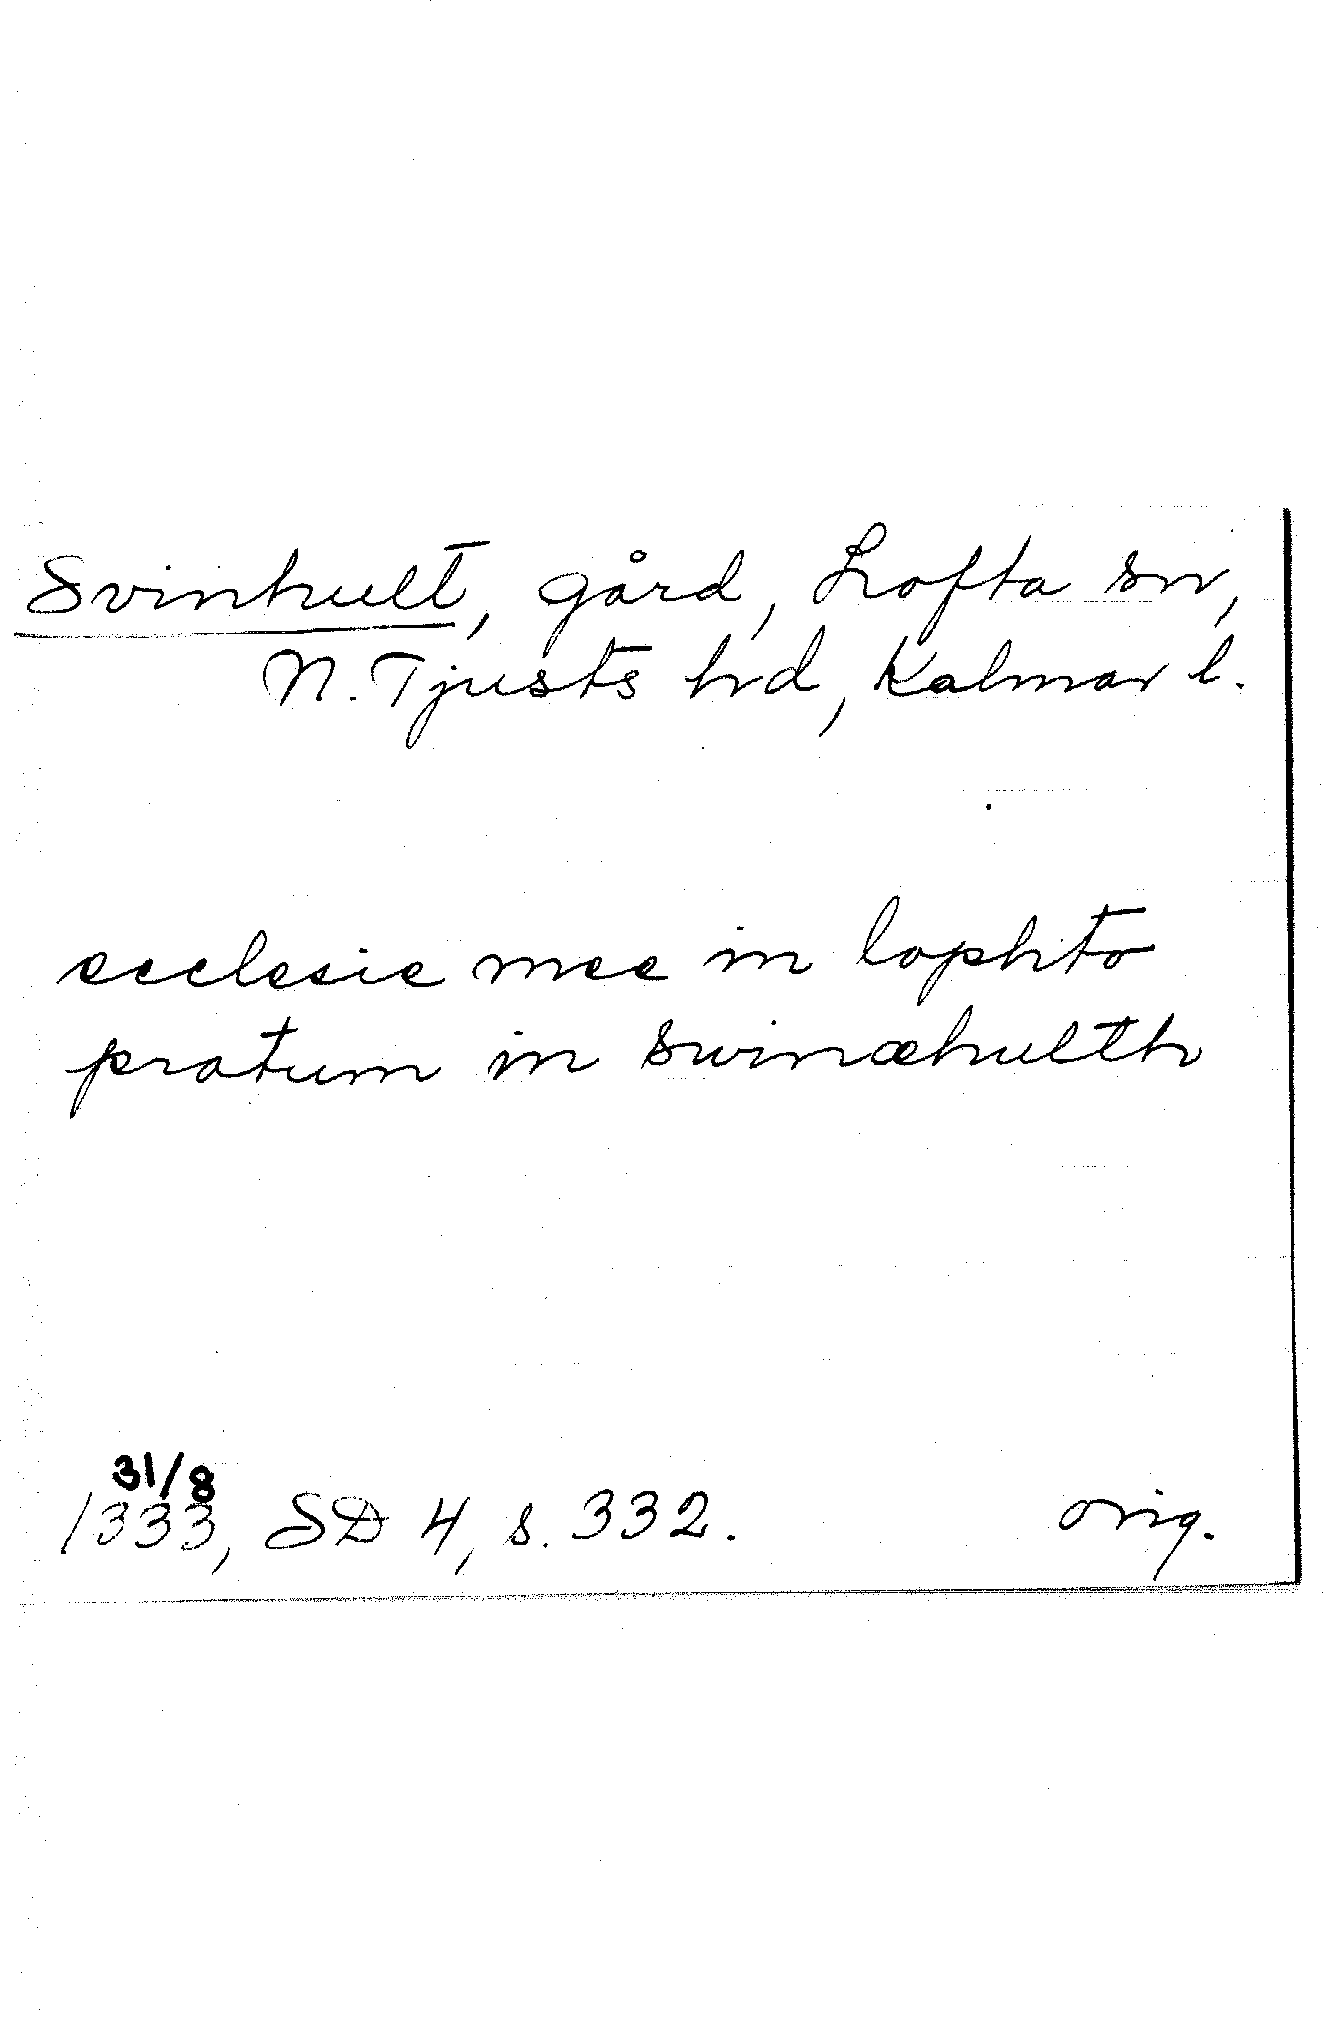 Svinhult, gård, Lofta sn,
N. Tjusts hd, Kalmar l.
ecclesie mee in lophto
pratum in swinæhulth
31/8
1333, SD 4, s. 332. orig.